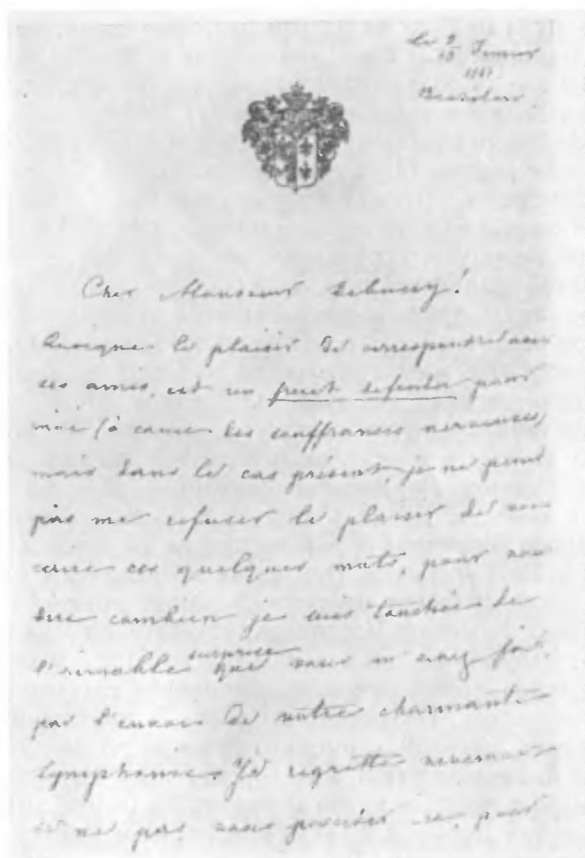 Le
Brazilow
Cher Monsieur Debussy!
Quoique le plaisir de correspondre avec
ses amis, est un fruit défendu pour
moi (à cause des souffrances nerveuses,
mais dans le cas présent, je ne peux
pas me refuser le plaisir de vous
écrire ces quelques mots, pour vous
dire combien je suis touchée de
l'aimable surprise que vous m'avez fait
par l'envoi de votre charmante
Symphonie. Je regrette vivement
de ne pas vous posséder ici, pour